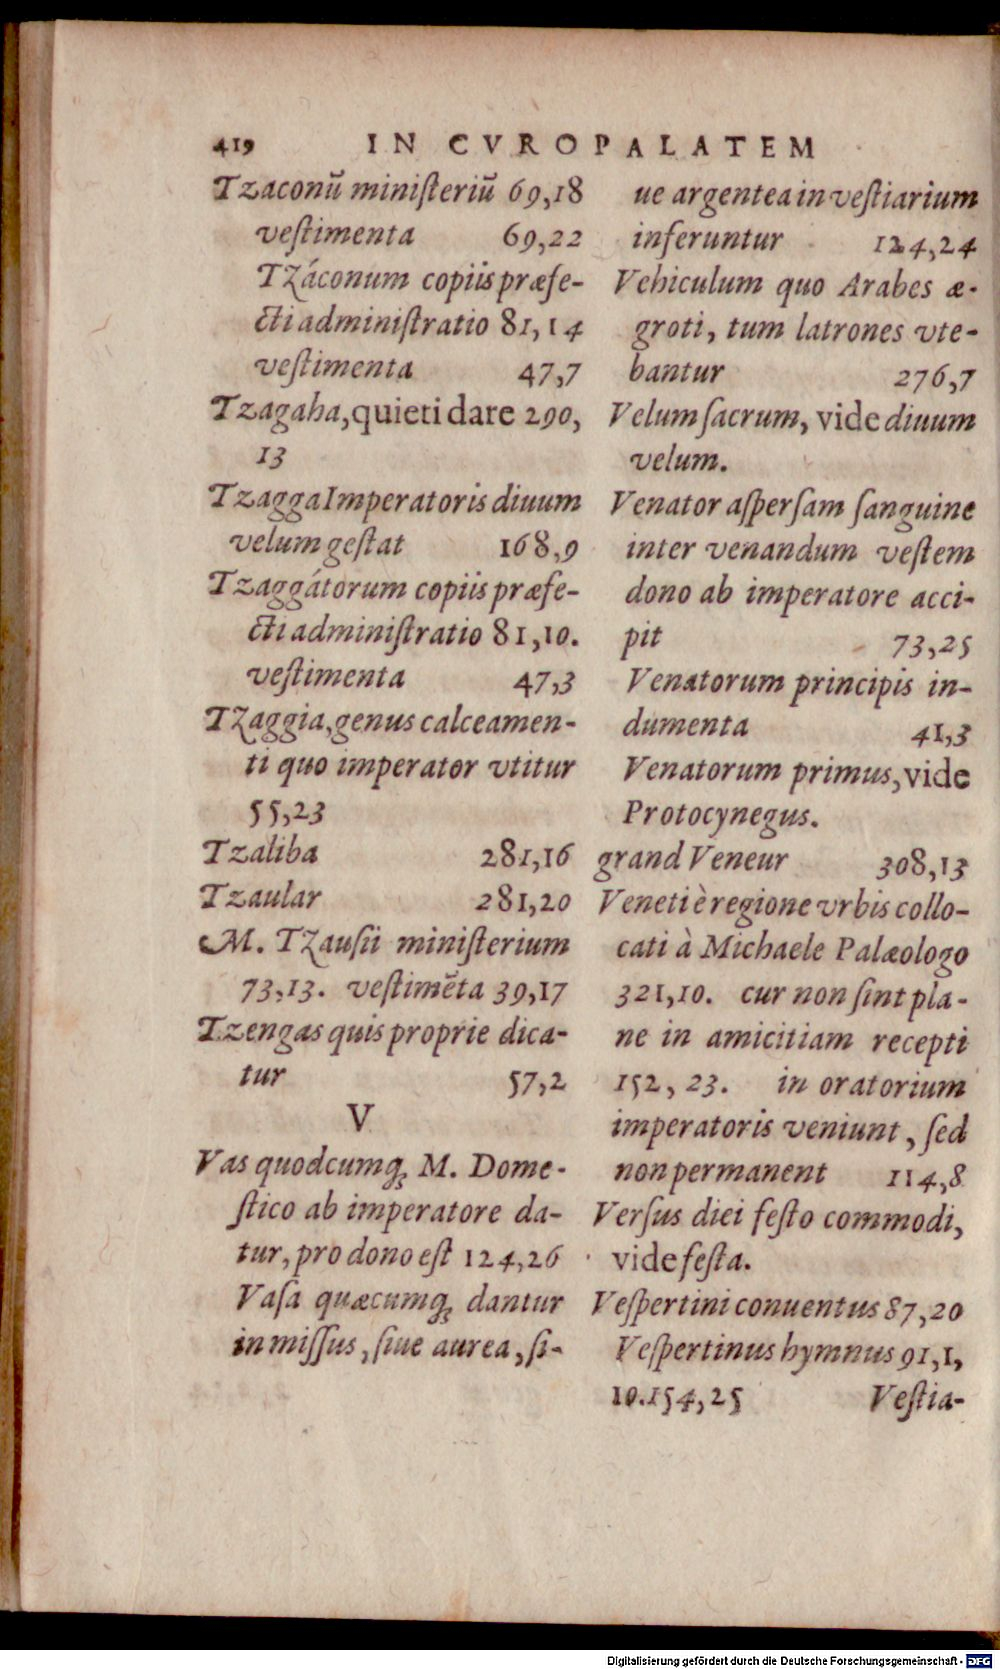 419 IN CVROPALATEM
Tzaconū miniſteriū 69,18
veſtimenta 69,22
Tzáconum copiis præfe-
cti adminiſtratio 81,14
veſtimenta 47,7
Tzagaha, quieti dare 290,
13
Tzagga Imperatoris diuum
velum geſtat 168,9
Tzaggátorum copiis præfe-
cti adminiſtratio 81,10.
veſtimenta 47,3
Tzaggia, genus calceamen-
ti quo imperator vtitur
55,23
Tzaliba 281,16
Tzaular 281,20
M. Tzauſii miniſterium
73,13. veſtimēta 39,17
Tzengas quis proprie dica-
tur 57,2
V
Vas quodcumq; M. Dome-
ſtico ab imperatore da-
tur, pro dono eſt 124,26
Vaſa quæcumq; dantur
in miſſus, ſiue aurea, ſi-
ue argentea in veſtiarium
inferuntur 124,24
Vehiculum quo Arabes æ-
groti, tum latrones vte-
bantur 276,7
Velum ſacrum, vide diuum
velum.
Venator aſperſam ſanguine
inter venandum veſtem
dono ab imperatore acci-
pit 73,25
Venatorum principis in-
dumenta 41,3
Venatorum primus, vide
Protocynegus.
grand Veneur 308,13
Veneti è regione vrbis collo-
cati à Michaele Palæologo
321,10. cur non ſint pla-
ne in amicitiam recepti
152, 23. in oratorium
imperatoris veniunt, ſed
non permanent 114,8
Verſus diei feſto commodi,
vide feſta.
Veſpertini conuentus 87,20
Veſpertinus hymnus 91,1,
10.154,25 Veſtia-
Digitalisierung gefördert durch die Deutsche Forschungsgemeinschaft - DFG